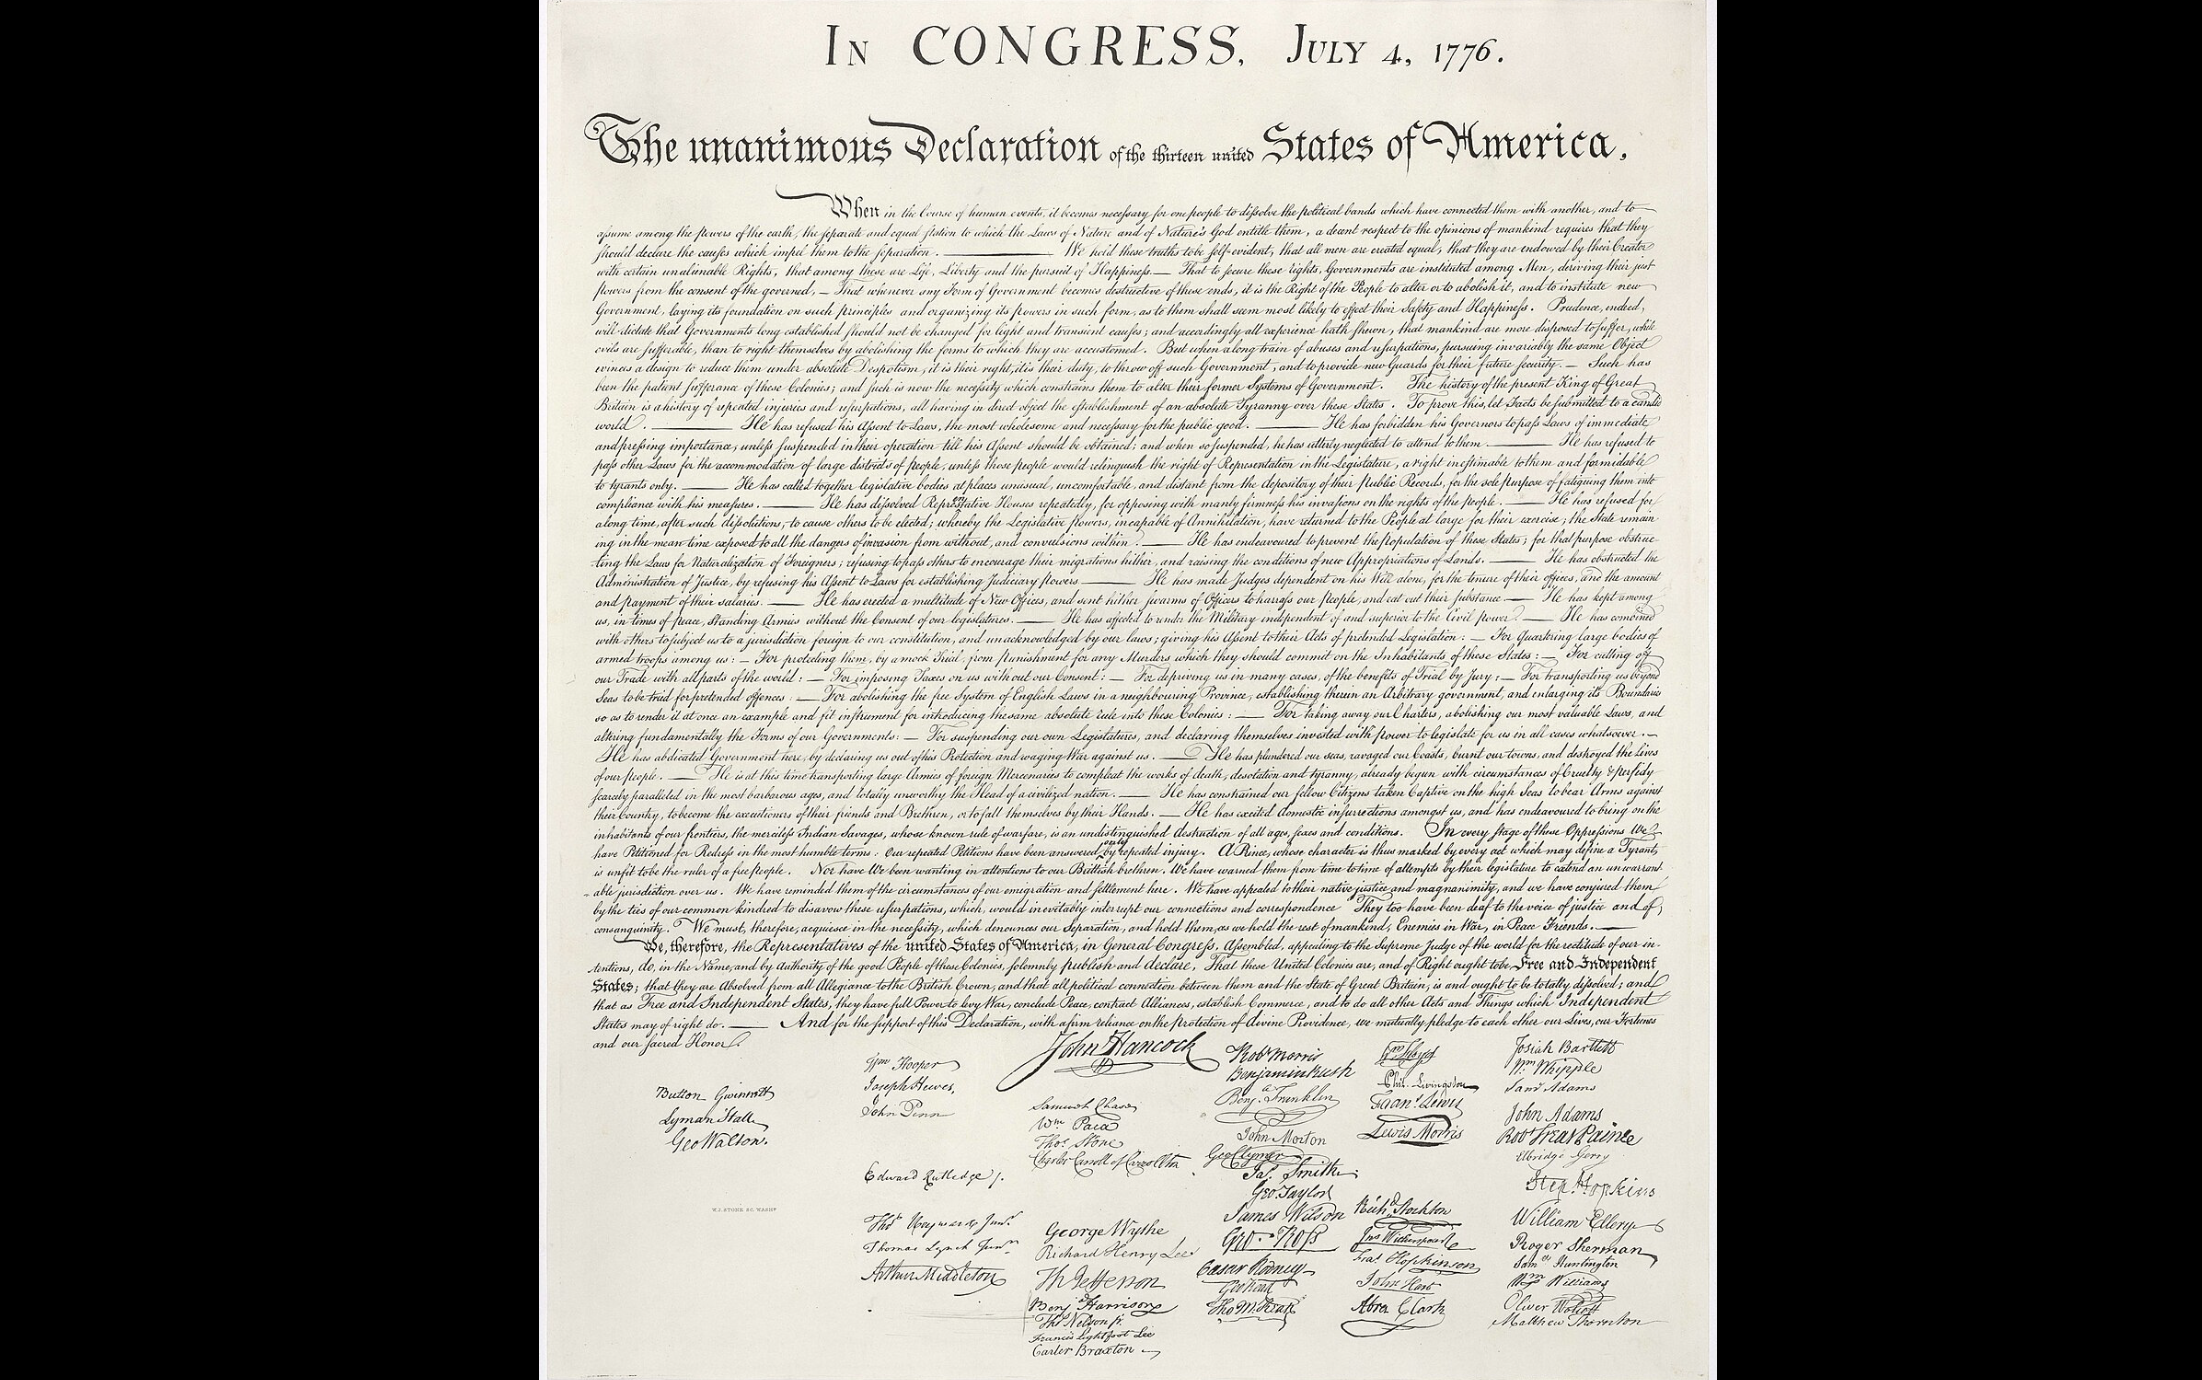 In CONGRESS, July 4, 1776.
The unanimous Declaration of the thirteen united States of America,
When in the Course of human events, it becomes necessary for one people to dissolve the political bands which have connected them with another, and to
assume among the powers of the earth, the separate and equal station to which the Laws of Nature and of Nature's God entitle them, a decent respect to the opinions of mankind requires that they
should declare the causes which impel them to the separation. We hold these truths to be self-evident, that all men are created equal, that they are endowed by their Creator
with certain unalienable Rights, that among these are Life, Liberty and the pursuit of Happiness.— That to secure these rights, Governments are instituted among Men, deriving their just
powers from the consent of the governed,— That whenever any Form of Government becomes destructive of these ends, it is the Right of the People to alter or to abolish it, and to institute new
Government, laying its foundation on such principles and organizing its powers in such form, as to them shall seem most likely to effect their Safety and Happiness. Prudence, indeed,
will dictate that Governments long established should not be changed for light and transient causes; and accordingly all experience hath shewn, that mankind are more disposed to suffer, while
evils are sufferable, than to right themselves by abolishing the forms to which they are accustomed. But when a long train of abuses and usurpations, pursuing invariably the same Object
evinces a design to reduce them under absolute Despotism, it is their right, it is their duty, to throw off such Government, and to provide new Guards for their future security.— Such has
been the patient sufferance of these Colonies; and such is now the necessity which constrains them to alter their former Systems of Government. The history of the present King of Great
Britain is a history of repeated injuries and usurpations, all having in direct object the establishment of an absolute Tyranny over these States. To prove this, let Facts be submitted to a candid
world. — He has refused his Assent to Laws, the most wholesome and necessary for the public good. — He has forbidden his Governors to pass Laws of immediate
and pressing importance, unless suspended in their operation till his Assent should be obtained; and when so suspended, he has utterly neglected to attend to them. — He has refused to
pass other Laws for the accommodation of large districts of people, unless those people would relinquish the right of Representation in the Legislature, a right inestimable to them and formidable
to tyrants only. — He has called together legislative bodies at places unusual, uncomfortable, and distant from the depository of their public Records, for the sole purpose of fatiguing them into
compliance with his measures. — He has dissolved Representative Houses repeatedly, for opposing with manly firmness his invasions on the rights of the people. — He has refused for
a long time, after such dissolutions, to cause others to be elected; whereby the Legislative powers, incapable of Annihilation, have returned to the People at large for their exercise; the State remain
ing in the mean time exposed to all the dangers of invasion from without, and convulsions within. — He has endeavoured to prevent the population of these States; for that purpose obstruc-
ting the Laws for Naturalization of Foreigners; refusing to pass others to encourage their migrations hither, and raising the conditions of new Appropriations of Lands. — He has obstructed the
Administration of Justice, by refusing his Assent to Laws for establishing Judiciary powers — He has made Judges dependent on his Will alone, for the tenure of their offices, and the amount
and payment of their salaries. — He has erected a multitude of New Offices, and sent hither swarms of Officers to harrass our people, and eat out their substance — He has kept among
us, in times of peace, Standing Armies without the Consent of our legislatures. — He has affected to render the Military independent of and superior to the Civil power. — He has combined
with others to subject us to a jurisdiction foreign to our constitution, and unacknowledged by our laws; giving his Assent to their Acts of pretended Legislation: — For Quartering large bodies of
armed troops among us: — For protecting them, by a mock Trial, from punishment for any Murders which they should commit on the Inhabitants of these States: — For cutting off
our Trade with all parts of the world: — For imposing Taxes on us without our Consent: — For depriving us in many cases, of the benefits of Trial by Jury: — For transporting us beyond
Seas to be tried for pretended offences — For abolishing the free System of English Laws in a neighbouring Province, establishing therein an Arbitrary government, and enlarging its Boundaries
so as to render it at once an example and fit instrument for introducing the same absolute rule into these Colonies: — For taking away our Charters, abolishing our most valuable Laws, and
altering fundamentally the Forms of our Governments: — For suspending our own Legislatures, and declaring themselves invested with power to legislate for us in all cases whatsoever. —
He has abdicated Government here, by declaring us out of his Protection and waging War against us. — He has plundered our seas, ravaged our Coasts, burnt our towns, and destroyed the Lives
of our people. — He is at this time transporting large Armies of foreign Mercenaries to compleat the works of death, desolation and tyranny, already begun with circumstances of Cruelty & perfidy
scarcely paralleled in the most barbarous ages, and totally unworthy the Head of a civilized nation. — He has constrained our fellow Citizens taken Captive on the high Seas to bear Arms against
their Country, to become the executioners of their friends and Brethren, or to fall themselves by their Hands. — He has excited domestic insurrections amongst us, and has endeavoured to bring on the
inhabitants of our frontiers, the merciless Indian Savages, whose known rule of warfare, is an undistinguished destruction of all ages, sexes and conditions. In every stage of these Oppressions We
have Petitioned for Redress in the most humble terms: Our repeated Petitions have been answered only by repeated injury. A Prince, whose character is thus marked by every act which may define a Tyrant,
is unfit to be the ruler of a free people. Nor have We been wanting in attentions to our Brittish brethren. We have warned them from time to time of attempts by their legislature to extend an unwarrant-
able jurisdiction over us. We have reminded them of the circumstances of our emigration and settlement here. We have appealed to their native justice and magnanimity, and we have conjured them
by the ties of our common kindred to disavow these usurpations, which, would inevitably interrupt our connections and correspondence They too have been deaf to the voice of justice and of
consanguinity. We must, therefore, acquiesce in the necessity, which denounces our Separation, and hold them, as we hold the rest of mankind, Enemies in War, in Peace Friends. —
We, therefore, the Representatives of the united States of America, in General Congress, Assembled, appealing to the Supreme Judge of the world for the rectitude of our in-
tentions, do, in the Name, and by Authority of the good People of these Colonies, solemnly publish and declare, That these United Colonies are, and of Right ought to be Free and Independent
States; that they are Absolved from all Allegiance to the British Crown, and that all political connection between them and the State of Great Britain, is and ought to be totally dissolved; and
that as Free and Independent States, they have full Power to levy War, conclude Peace, contract Alliances, establish Commerce, and to do all other Acts and Things which Independent
States may of right do. — And for the support of this Declaration, with a firm reliance on the protection of divine Providence, we mutually pledge to each other our Lives, our Fortunes
and our sacred Honor.
Button Gwinnett
Lyman Hall
Geo Walton.
Wm Hooper
Joseph Hewes,
John Penn
Edward Rutledge /.
Thos Heyward Junr.
Thomas Lynch Junr.
Arthur Middleton
John Hancock
Samuel Chase
Wm. Paca
Thos. Stone
Charles Carroll of Carrollton
George Wythe
Richard Henry Lee
Th Jefferson
Benj Harrison
Thos Nelson jr.
Francis Lightfoot Lee
Carter Braxton
Robt Morris
Benjamin Rush
Benj. Franklin
John Morton
Geo Clymer
Jas. Smith
Geo Taylor
James Wilson
Geo. Ross
Caesar Rodney
Geo Read
Tho M:Kean
Wm Floyd
Phil. Livingston
Frans. Lewis
Lewis Morris
Richd. Stockton
Jno Witherspoon
Fras. Hopkinson
John Hart
Abra Clark
Josiah Bartlett
Wm. Whipple
Saml Adams
John Adams
Robt Treat Paine
Elbridge Gerry
Step. Hopkins
William Ellery
Roger Sherman
Saml Huntington
Wm Williams
Oliver Wolcott
Matthew Thornton
W. J. STONE SC. WASHN